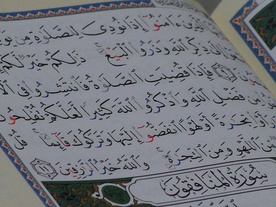 ءَامَنُوٓا۟ إِذَا نُودِىَ لِلصَّلَوٰةِ مِن
ذِكْرِ ٱللَّهِ وَذَرُوا۟ ٱلْبَيْعَ ذَٰلِكُمْ خَيْرٌ لَّكُمْ
فَإِذَا قُضِيَتِ ٱلصَّلَوٰةُ فَٱنتَشِرُوا۟ فِى
مِن فَضْلِ ٱللَّهِ وَٱذْكُرُوا۟ ٱللَّهَ كَثِيرًا لَّعَلَّكُمْ تُفْلِحُونَ
تِجَٰرَةً أَوْ لَهْوًا ٱنفَضُّوٓا۟ إِلَيْهَا وَتَرَكُوكَ قَآئِمًا قُلْ
مِّنَ ٱللَّهْوِ وَمِنَ ٱلتِّجَٰرَةِ وَٱللَّهُ خَيْرُ ٱلرَّٰزِقِينَ
سُورَةُ الْمُنَافِقُونَ